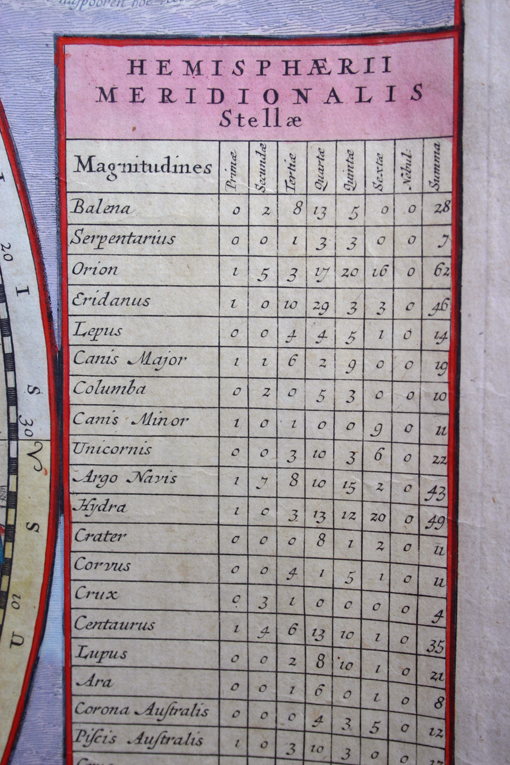 HEMISPHÆRII
MERIDIONALIS
Stellæ
Magnitudines Primæ Secundæ Tertiæ Quartæ Quintæ Sextæ Nebul: Summa
Balena 0 2 8 13 5 0 0 28
Serpentarius 0 0 1 3 3 0 0 7
Orion 1 5 3 17 20 16 0 62
Eridanus 1 0 10 29 3 3 0 46
Lepus 0 0 4 4 5 1 0 14
Canis Major 1 1 6 2 9 0 0 19
Columba 0 2 0 5 3 0 0 10
Canis Minor 1 0 1 0 0 9 0 11
Unicornis 0 0 3 10 3 6 0 22
Argo Navis 1 7 8 10 15 2 0 43
Hydra 1 0 3 13 12 20 0 49
Crater 0 0 0 8 1 2 0 11
Corvus 0 0 4 1 5 1 0 11
Crux 0 3 1 0 0 0 0 4
Centaurus 1 4 6 13 10 1 0 35
Lupus 0 0 2 8 10 1 0 21
Ara 0 0 1 6 0 1 0 8
Corona Auſtralis 0 0 0 4 3 5 0 12
Piſcis Auſtralis 1 0 3 10 3 0 0
20
I
I
S
30
V
S
10
U